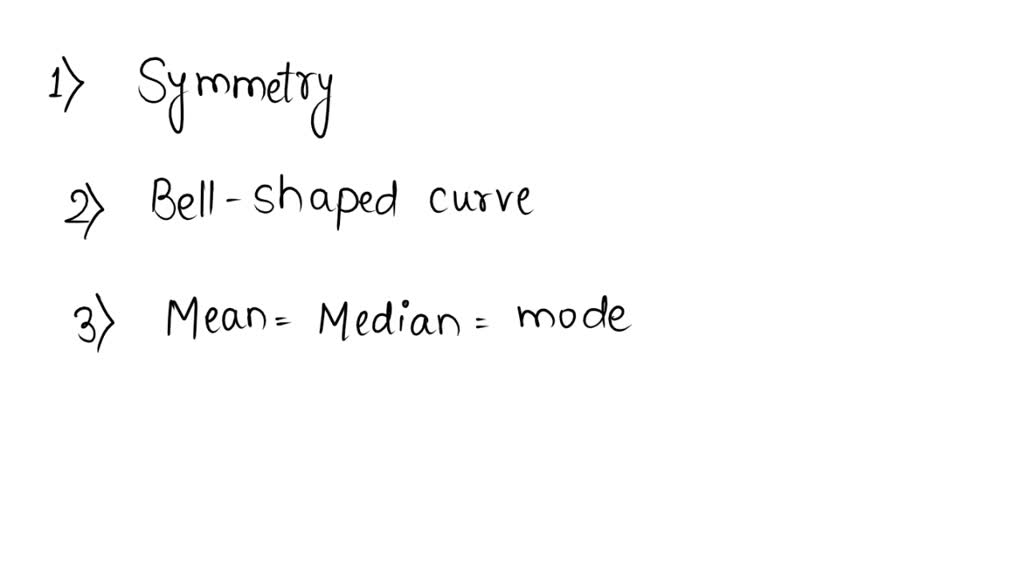 1) Symmetry
2) Bell-shaped curve
3) Mean = Median = mode